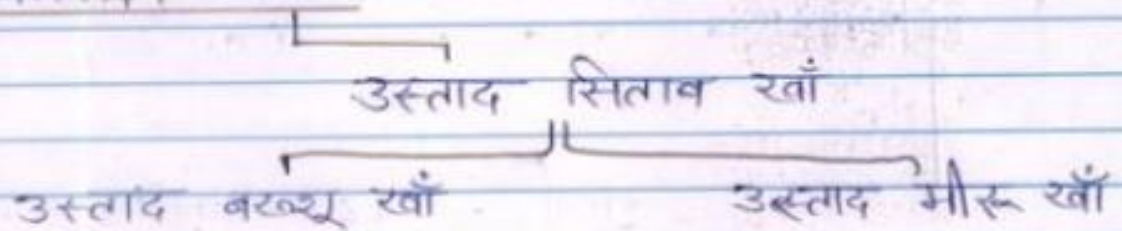 उस्ताद सिताव खाँ
उस्ताद बख्शू खाँ उस्ताद मीरू खाँ